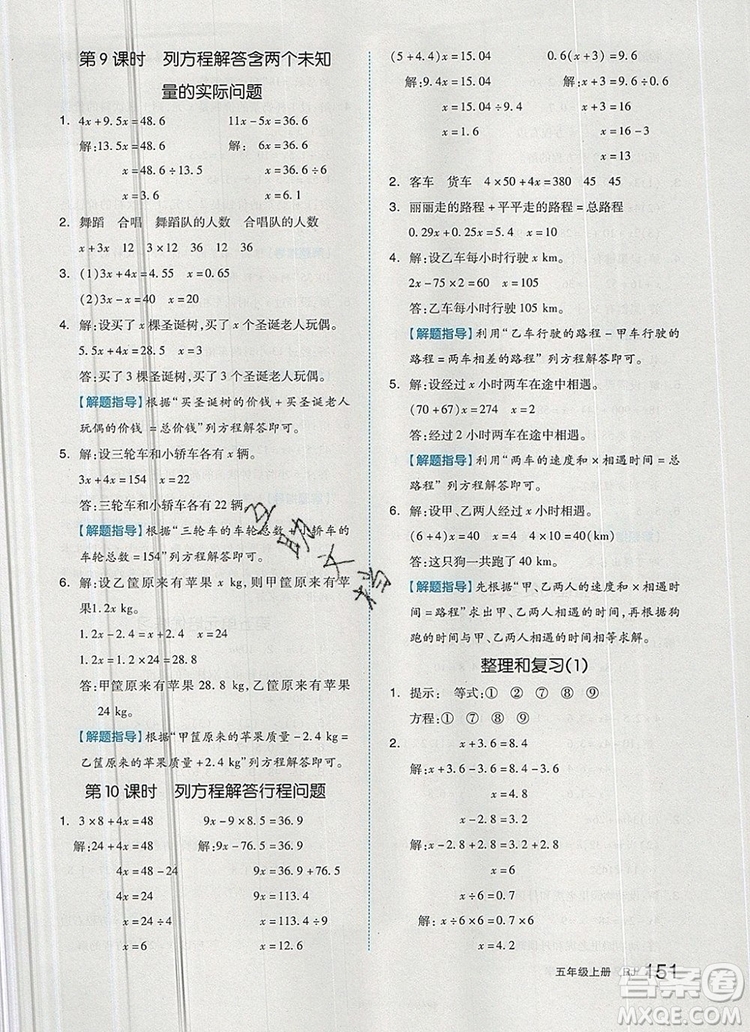 第9课时 列方程解答含两个未知
量的实际问题
1. 4x+9.5x=48.6 11x-5x=36.6
解:13.5x=48.6 解: 6x=36.6
x=48.6÷13.5 x=36.6÷6
x=3.6 x=6.1
2. 舞蹈 合唱 舞蹈队的人数 合唱队的人数
x+3x 12 3×12 36 12 36
3. (1)3x+4x=4.55 x=0.65
(2)3x-x=40 x=20
4. 解:设买了x棵圣诞树,买了x个圣诞老人玩偶。
5.5x+4x=28.5 x=3
答:买了3棵圣诞树,买了3个圣诞老人玩偶。
【解题指导】根据“买圣诞树的价钱+买圣诞老人
玩偶的价钱=总价钱”列方程解答即可。
5. 解:设三轮车和小轿车各有x辆。
3x+4x=154 x=22
答:三轮车和小轿车各有22辆。
【解题指导】根据“三轮车的车轮总数+小轿车的
车轮总数=154”列方程解答即可。
6. 解:设乙筐原来有苹果x kg,则甲筐原来有苹
果1.2x kg。
1.2x-2.4=x+2.4 x=24
1.2x=1.2×24=28.8
答:甲筐原来有苹果28.8 kg,乙筐原来有苹果
24 kg。
【解题指导】根据“甲筐原来的苹果质量-2.4 kg=
乙筐原来的苹果质量+2.4 kg”列方程解答即可。
第10课时 列方程解答行程问题
1. 3×8+4x=48 9x-9×8.5=36.9
解:24+4x=48 解:9x-76.5=36.9
4x=48-24 9x=36.9+76.5
4x=24 9x=113.4
x=24÷4 x=113.4÷9
x=6 x=12.6
(5+4.4)x=15.04 0.6(x+3)=9.6
解:9.4x=15.04 解:x+3=9.6÷0.6
x=15.04÷9.4 x+3=16
x=1.6 x=16-3
x=13
2. 客车 货车 4×50+4x=380 45 45
3. 丽丽走的路程+平平走的路程=总路程
0.29x+0.25x=5.4 x=10
4. 解:设乙车每小时行驶x km。
2x-75×2=60 x=105
答:乙车每小时行驶105 km。
【解题指导】利用“乙车行驶的路程-甲车行驶的
路程=两车相差的路程”列方程解答即可。
5. 解:设经过x小时两车在途中相遇。
(70+67)x=274 x=2
答:经过2小时两车在途中相遇。
【解题指导】利用“两车的速度和×相遇时间=总
路程”列方程解答即可。
6. 解:设甲、乙两人经过x小时相遇。
(6+4)x=40 x=4 4×10=40(km)
答:这只狗一共跑了40 km。
【解题指导】先根据“甲、乙两人的速度和×相遇时
间=总路程”求出甲、乙两人相遇的时间,再根据狗
跑的时间与甲、乙两人相遇的时间相等求解。
整理和复习(1)
1. 提示: 等式:① ② ⑦ ⑧ ⑨
方程:② ⑧ ⑨
2. x+3.6=8.4
解:x+3.6-3.6=8.4-3.6
x=4.8
x-2.8=3.2
解:x-2.8+2.8=3.2+2.8
x=6
x÷6=0.7
解:x÷6×6=0.7×6
x=4.2
五年级上册 RJ 151
互助文档
答案圈
MXQE.COM